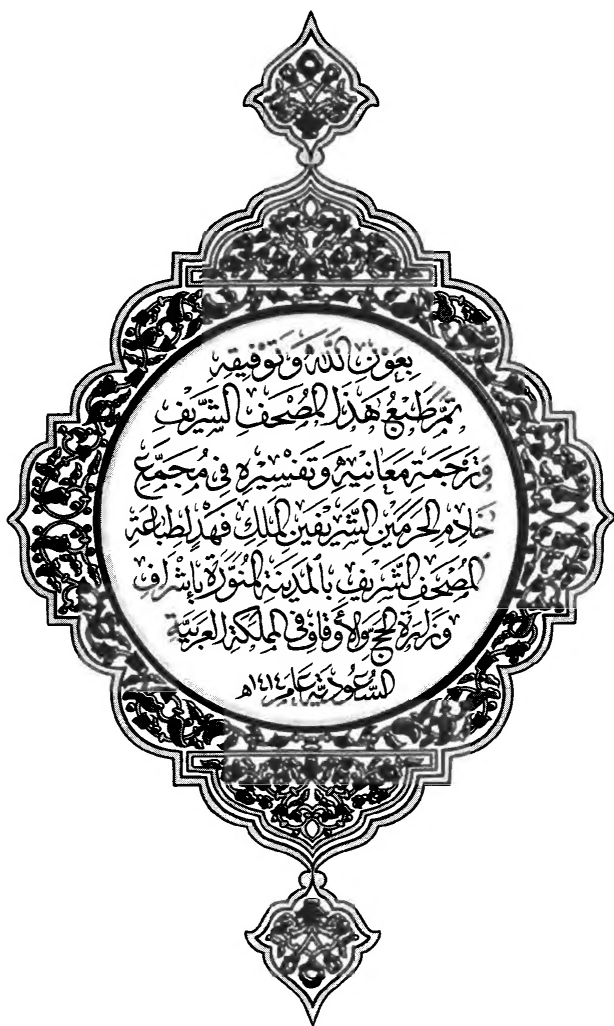 بِعَوْنِ اللَّهِ وَتَوْفِيقِهِ
تَمَّ طَبْعُ هَذَا الْمُصْحَفِ الشَّرِيفِ
وَتَرْجَمَةِ مَعَانِيهِ وَتَفْسِيرِهِ فِي مُجَمَّعِ
خَادِمِ الْحَرَمَيْنِ الشَّرِيفَيْنِ الْمَلِكِ فَهْدٍ لِطِبَاعَةِ
الْمُصْحَفِ الشَّرِيفِ بِالْمَدِينَةِ الْمُنَوَّرَةِ بِإِشْرَافِ
وَزَارَةِ الْحَجِّ وَالْأَوْقَافِ فِي الْمَمْلَكَةِ الْعَرَبِيَّةِ
السُّعُودِيَّةِ عَامَ ١٤١٤ هـ